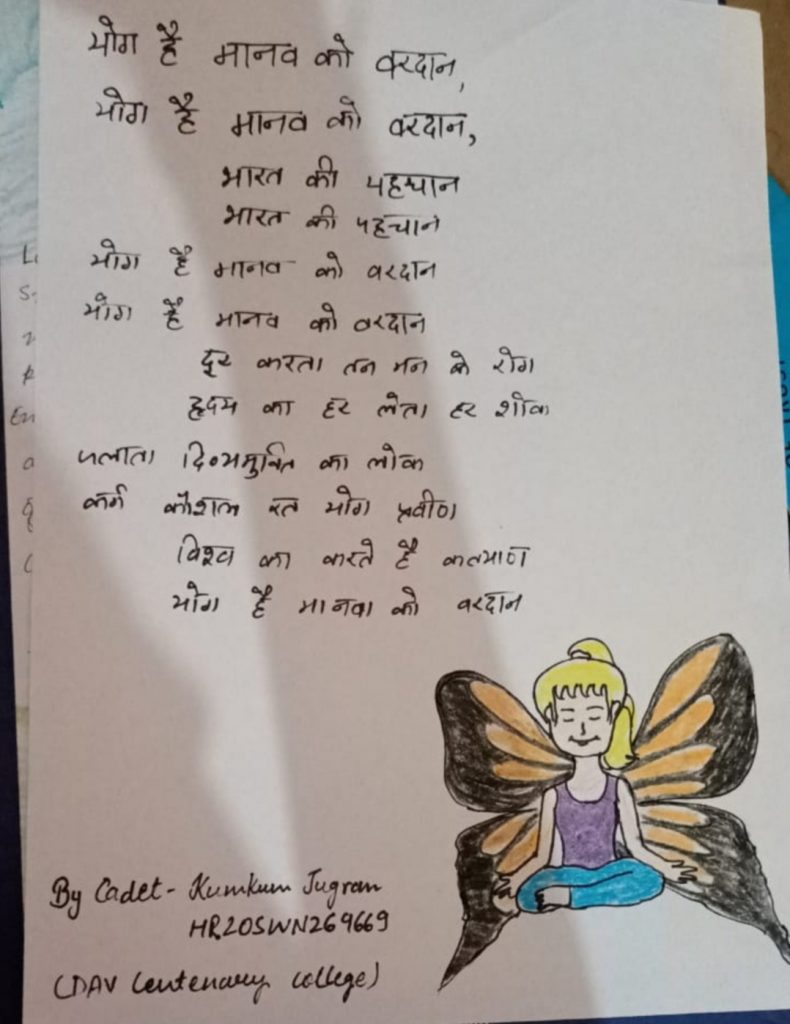 योग है मानव को वरदान,
योग है मानव को वरदान,
भारत की पहचान
भारत की पहचान
योग है मानव को वरदान
योग है मानव को वरदान
दूर करता तन मन के रोग
हृदय का हर लेता हर शोक
का लोक
कर्म कौशल रत योग प्रवीण
विश्व का करते है कल्याण
योग है मानवा को वरदान
By Cadet- Kumkum Jugran
HR20SWN269669
(DAV Centenary College)